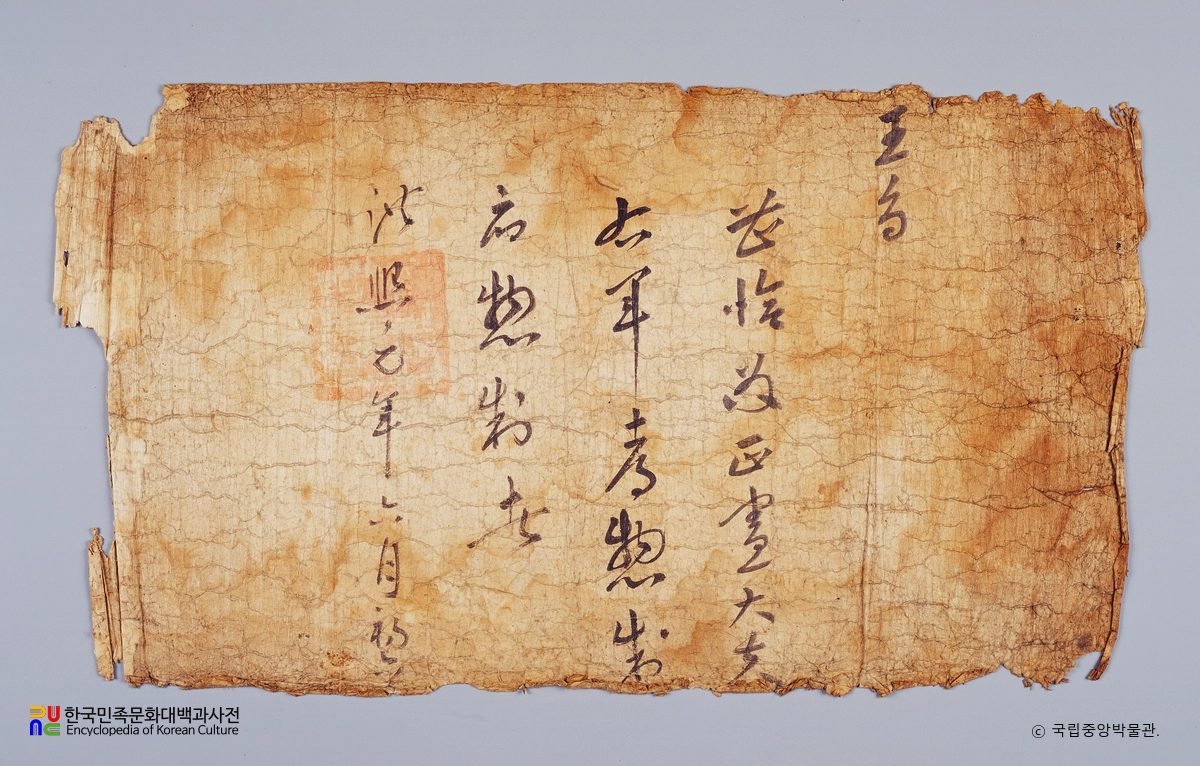 王旨
曺恰為正憲大夫
右軍都惣制
府惣制者
洪熙元年六月初
한국민족문화대백과사전
Encyclopedia of Korean Culture
© 국립중앙박물관.